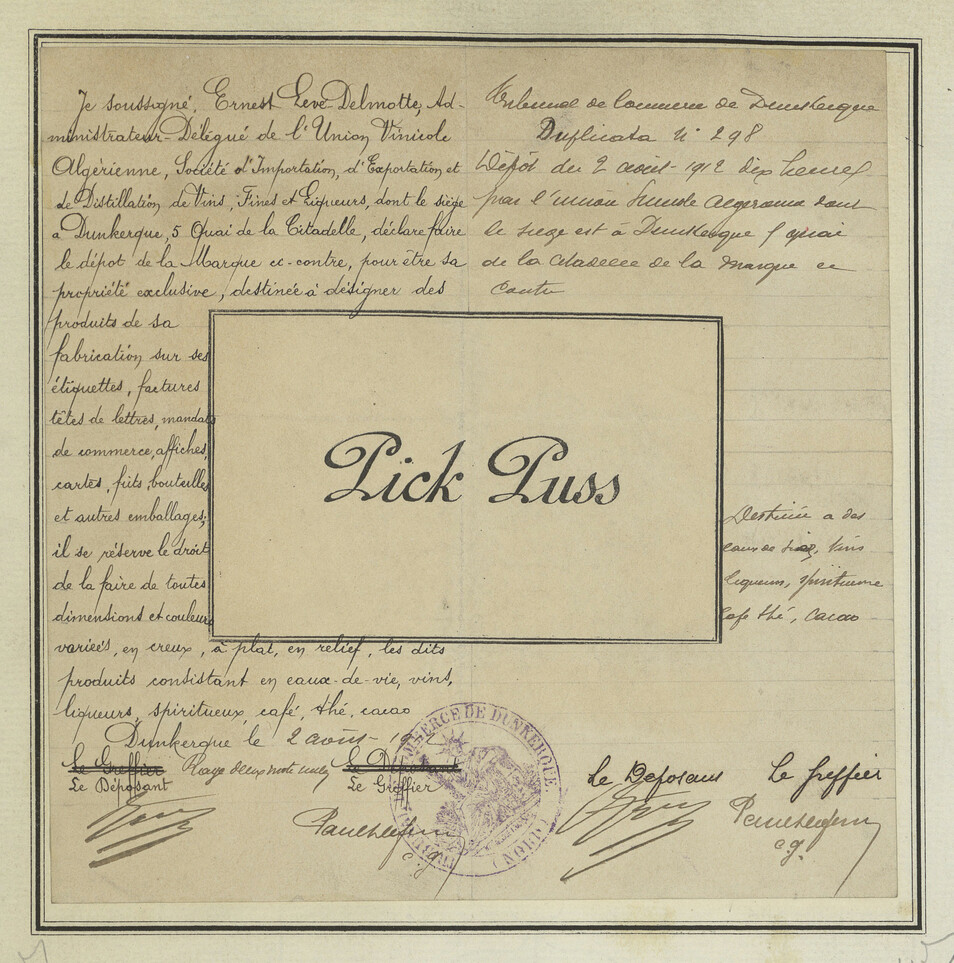 Je soussigné, Ernest Leve-Delmotte, Ad-
ministrateur-Délégué de l'Union Vinicole
Algérienne, Société d'Importation, d'Exportation et
de Distillation de Vins, Fines et Liqueurs, dont le siège
a Dunkerque, 5 Quai de la Citadelle, déclare faire
le dépot de la Marque ci-contre, pour être sa
propriété exclusive, destinée à désigner des
produits de sa
fabrication sur ses
étiquettes, factures
têtes de lettres, mandats
de commerce, affiches,
cartes, fûts, bouteilles
et autres emballages;
il se réserve le droit
de la faire de toutes
dimensions et couleurs
variées, en creux, à plat, en relief, les dits
produits consistant en eaux-de-vie, vins,
liqueurs, spiritueux, café, thé, cacao
Dunkerque le 2 août 19
Le Greffier Rayé deux mots nuls Le Déposant
Le Déposant Le Greffier
c.g.
Tribunal de Commerce de Dunkerque
Duplicata N° 298
Dépôt du 2 août 1912 dix heures
par l'union vinicole algérienne dont
le siege est à Dunkerque 5 quai
de la citadelle de la marque ci
contre
Pick Puss
Destinée a des
eaux de vie, vins
liqueurs, spiritueux
cafe thé, cacao
Le Déposant Le Greffier
c.g.
COMMERCE DE DUNKERQUE
(NORD)